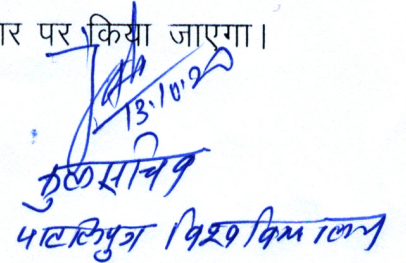 र पर किया जाएगा।
13.10.20
कुलसचिव
पाटलिपुत्र विश्वविद्यालय